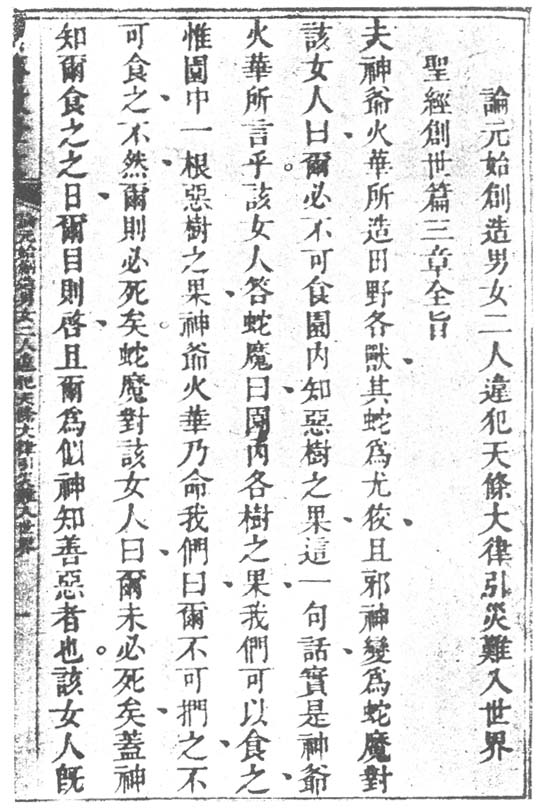 論元始創造男女二人違犯天條大律引災難入世界
聖經創世篇三章全旨
夫神爺火華所造田野各獸其蛇爲尤狡且邪神變爲蛇魔對
該女人曰爾必不可食園內知惡樹之果這一句話實是神爺
火華所言乎該女人答蛇魔曰園內各樹之果我們可以食之
惟園中一根惡樹之果神爺火華乃命我們曰爾不可捫之不
可食之不然爾則必死矣蛇魔對該女人曰爾未必死矣蓋神
知爾食之之日爾目則啓且爾爲似神知善惡者也該女人旣
論元始創造男女二人違犯天條大律引災難入世界